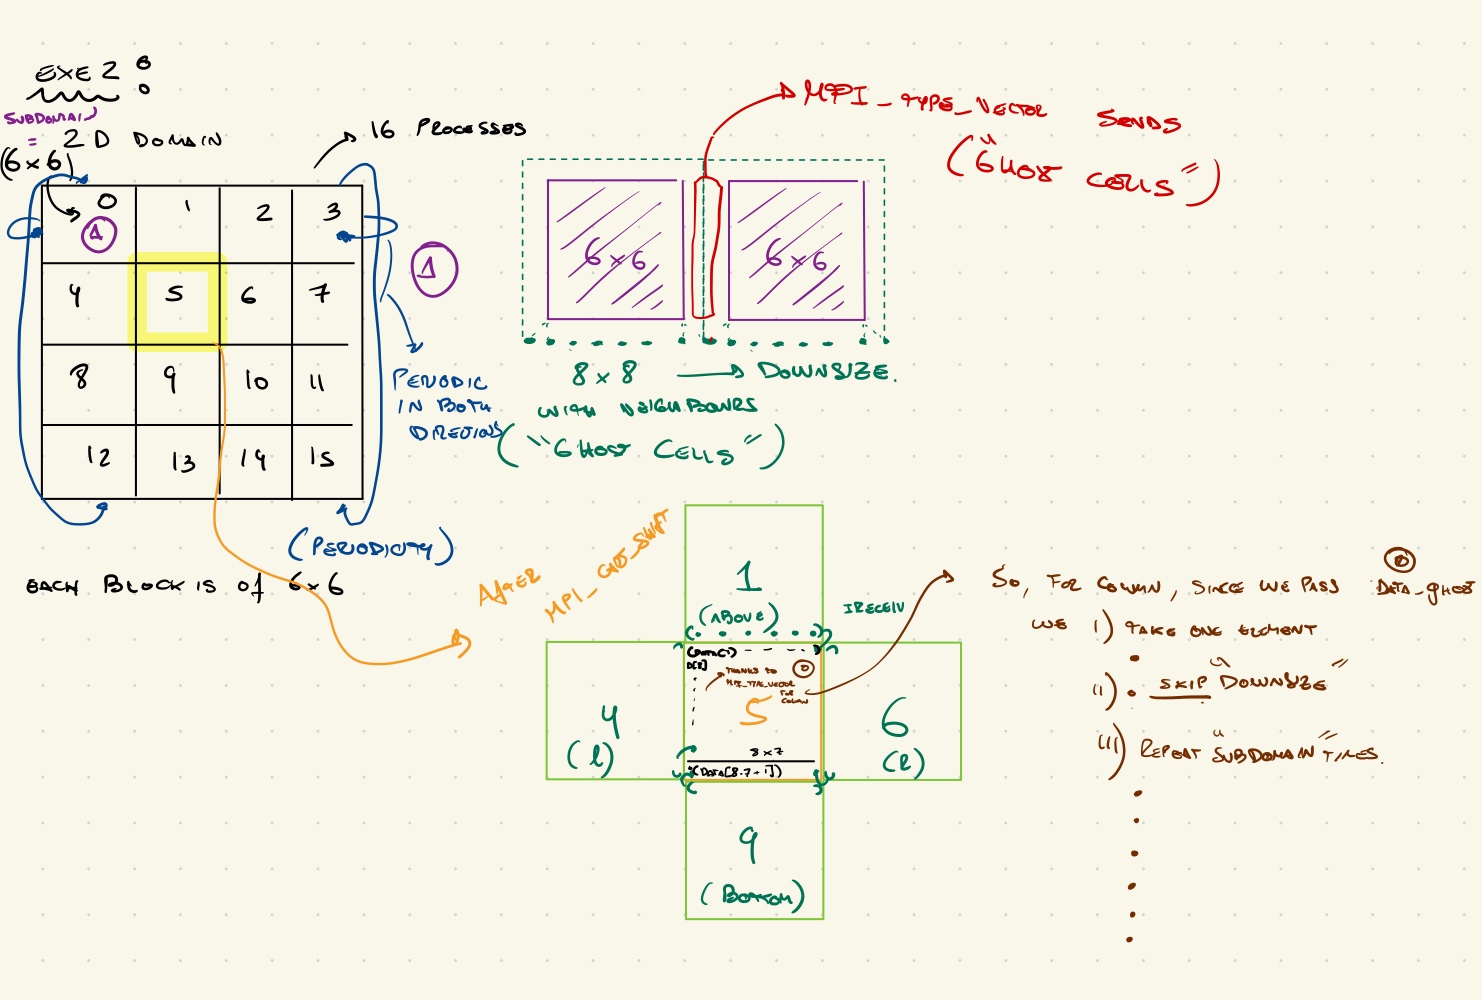 EXE 2 :
SUBDOMAIN
= 2 D DOMAIN
(6x6)
16 PROCESSES
0 1 2 3
1
4 5 6 7
8 9 10 11
12 13 14 15
1
PERIODIC
IN BOTH
DIRECTIONS
(PERIODICITY)
EACH BLOCK IS of 6x6
MPI_TYPE_VECTOR SENDS
("GHOST CELLS")
6x6 6x6
8x8 → DOWNSIZE.
WITH NEIGHBOURS
("GHOST CELLS")
AFTER
MPI_CART_SHIFT
1
(ABOVE)
4
(L)
THANKS TO
MPI_TYPE_VECTOR
FOR
COLUMN
5
8x7
(DATA[8.7+1])
6
(R)
9
(BOTTOM)
IRECEIV
So, FOR COLUMN, SINCE WE PASS DATA_ghost
WE I) TAKE ONE ELEMENT
II) SKIP "DOWNSIZE"
III) REPEAT "SUBDOMAIN" TIMES.